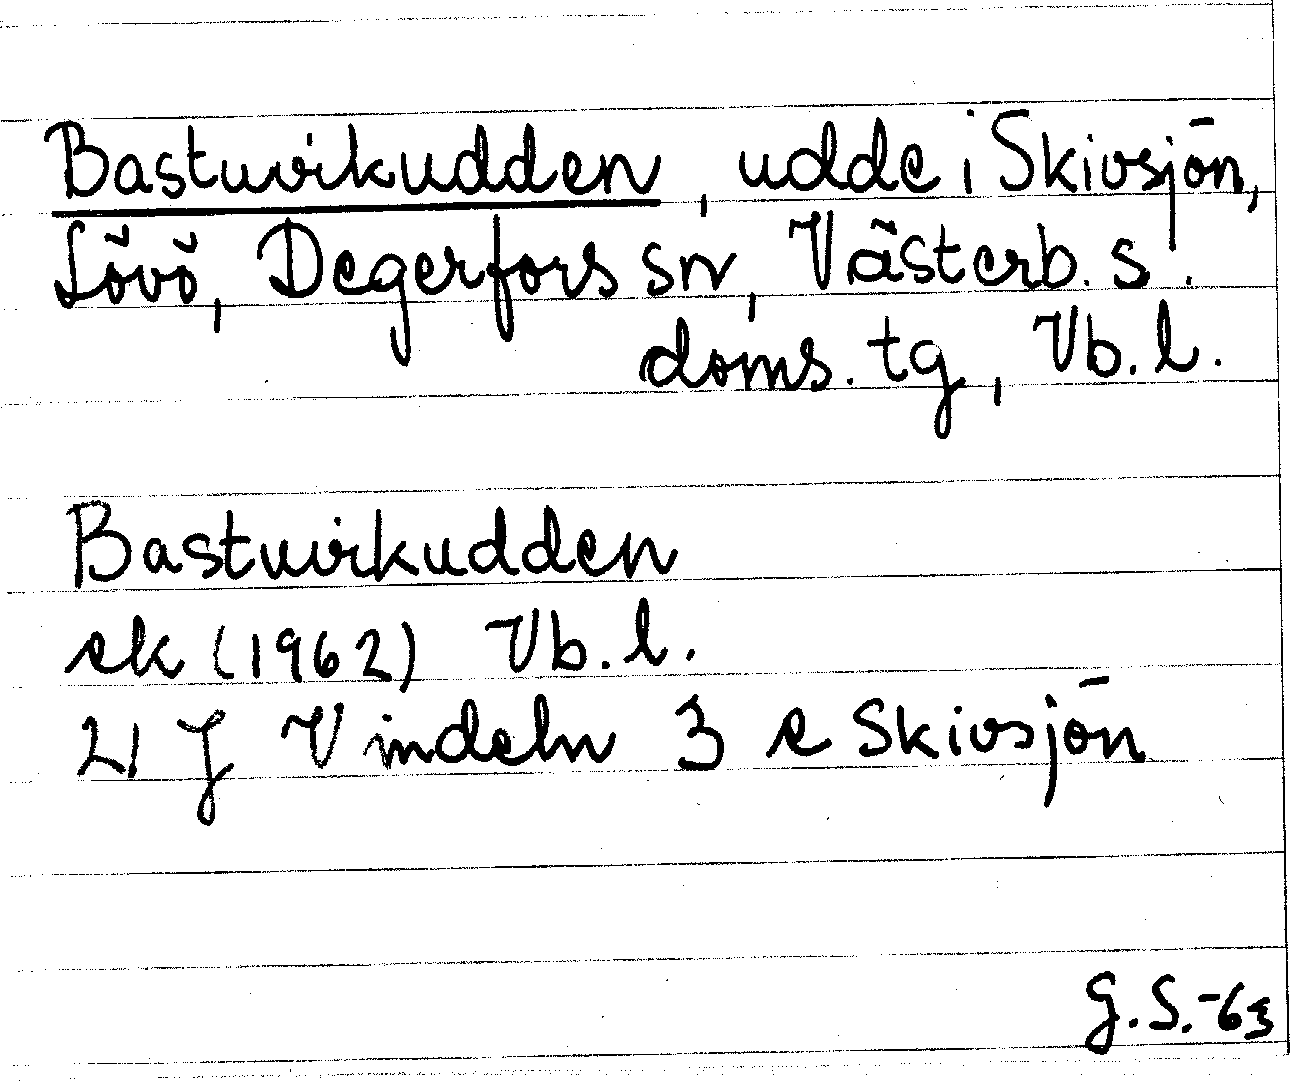 Bastuvikudden, udde i Skivsjön,
Lövö, Degerfors sn, Västerb. s.
doms. tg, Vb. l.
Bastuvikudden
ek (1962) Vb. l.
21 J Vindeln 3 e Skivsjön
G. S. -63